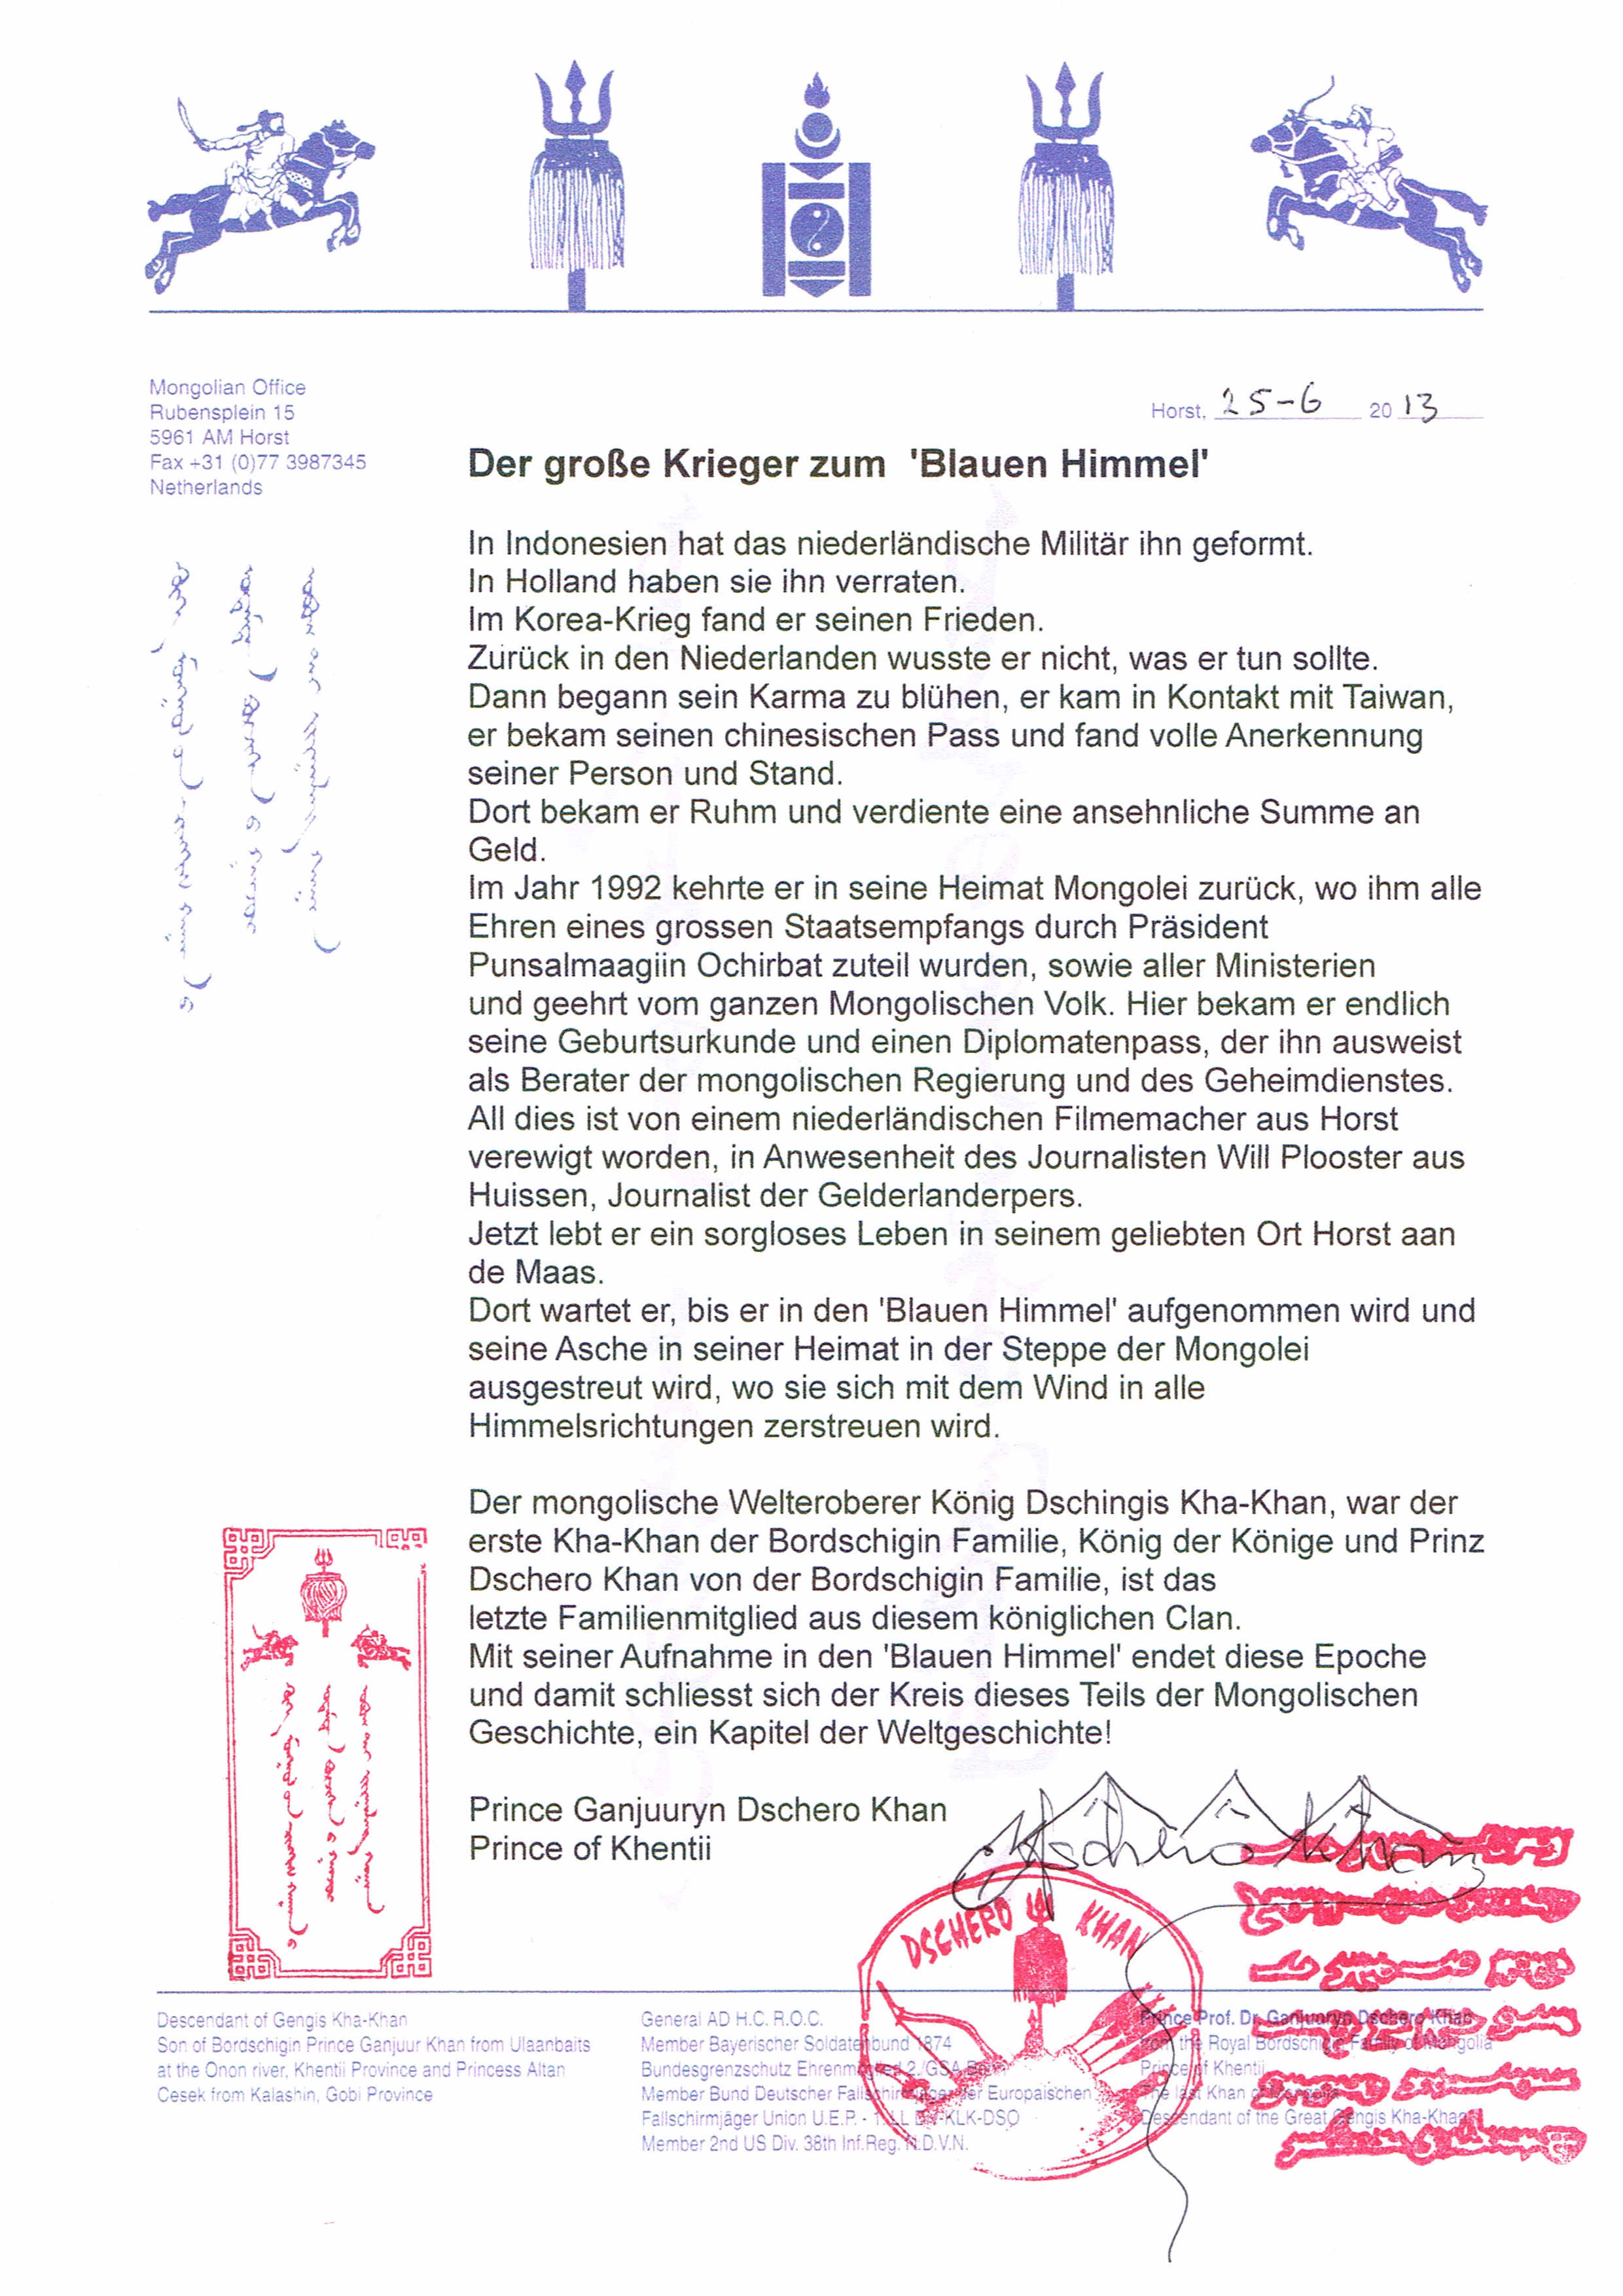 Mongolian Office
Rubensplein 15
5961 AM Horst
Fax +31 (0)77 3987345
Netherlands
Horst, 25-6 2013
Der große Krieger zum 'Blauen Himmel'
In Indonesien hat das niederländische Militär ihn geformt.
In Holland haben sie ihn verraten.
Im Korea-Krieg fand er seinen Frieden.
Zurück in den Niederlanden wusste er nicht, was er tun sollte.
Dann begann sein Karma zu blühen, er kam in Kontakt mit Taiwan,
er bekam seinen chinesischen Pass und fand volle Anerkennung
seiner Person und Stand.
Dort bekam er Ruhm und verdiente eine ansehnliche Summe an
Geld.
Im Jahr 1992 kehrte er in seine Heimat Mongolei zurück, wo ihm alle
Ehren eines grossen Staatsempfangs durch Präsident
Punsalmaagiin Ochirbat zuteil wurden, sowie aller Ministerien
und geehrt vom ganzen Mongolischen Volk. Hier bekam er endlich
seine Geburtsurkunde und einen Diplomatenpass, der ihn ausweist
als Berater der mongolischen Regierung und des Geheimdienstes.
All dies ist von einem niederländischen Filmemacher aus Horst
verewigt worden, in Anwesenheit des Journalisten Will Plooster aus
Huissen, Journalist der Gelderlanderpers.
Jetzt lebt er ein sorgloses Leben in seinem geliebten Ort Horst aan
de Maas.
Dort wartet er, bis er in den 'Blauen Himmel' aufgenommen wird und
seine Asche in seiner Heimat in der Steppe der Mongolei
ausgestreut wird, wo sie sich mit dem Wind in alle
Himmelsrichtungen zerstreuen wird.
Der mongolische Welteroberer König Dschingis Kha-Khan, war der
erste Kha-Khan der Bordschigin Familie, König der Könige und Prinz
Dschero Khan von der Bordschigin Familie, ist das
letzte Familienmitglied aus diesem königlichen Clan.
Mit seiner Aufnahme in den 'Blauen Himmel' endet diese Epoche
und damit schliesst sich der Kreis dieses Teils der Mongolischen
Geschichte, ein Kapitel der Weltgeschichte!
Prince Ganjuuryn Dschero Khan
Prince of Khentii
Dschero Khan
DSCHERO KHAN
Descendant of Gengis Kha-Khan
Son of Bordschigin Prince Ganjuur Khan from Ulaanbaits
at the Onon river, Khentii Province and Princess Altan
Cesek from Kalashin, Gobi Province
General AD H.C. R.O.C.
Member Bayerischer Soldatenbund 1874
Bundesgrenzschutz Ehrenmitglied 2./GSA
Member Bund Deutscher Fallschirmjäger der Europaischen
Fallschirmjäger Union U.E.P. - 1. LL DIV-KLK-DSO
Member 2nd US Div. 38th Inf.Reg. N.D.V.N.
Prince Prof. Dr. Ganjuuryn Dschero Khan
from the Royal Bordschigin Family of Mongolia
Prince of Khentii
The last Khan of Mongolia
Descendant of the Great Gengis Kha-Khan